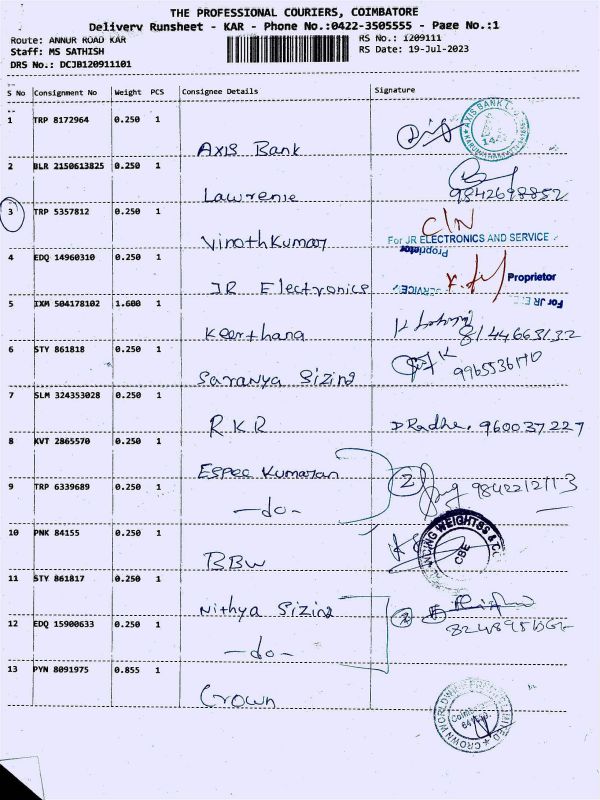 THE PROFESSIONAL COURIERS, COIMBATORE
Delivery Runsheet - KAR - Phone No.:0422-3505555 - Page No.:1
Route: ANNUR ROAD KAR
RS No.: 1209111
Staff: MS SATHISH
RS Date: 19-Jul-2023
DRS No.: DCJB120911101
S No Consignment No Weight PCS Consignee Details Signature
1 TRP 8172964 0.250 1
Axis Bank
AXIS BANK
2 BLR 2150613825 0.250 1
Lawrenie
9842698852
3 TRP 5357812 0.250 1
Vinothkumar
C/N
For JR ELECTRONICS AND SERVICE
Proprietor
4 EDQ 14960310 0.250 1
JR Electronics
SERVICE
Proprietor
For JR E
5 IXM 504178102 1.600 1
Keerthana
8144663132
6 STY 861818 0.250 1
Saranya Sizing
7 SLM 324353028 0.250 1
RKR
D Radhe. 960037227
8 KVT 2865570 0.250 1
Espee Kumaran
2
9 TRP 6339689 0.250 1
-do-
10 PNK 84155 0.250 1
BBW
WEIGHTSS & CO
CBE
11 STY 861817 0.250 1
Nithya Sizing
12 EDQ 15900633 0.250 1
-do-
13 PYN 8091975 0.855 1
Crown
CROWN WORLDWIDE
LIMITED